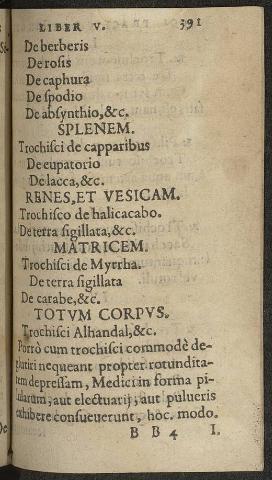 LIBER V. 391
De berberis
De rosis
De caphura
De spodio
De absynthio, &c.
SPLENEM.
Trochisci de capparibus
De eupatorio
De lacca, &c.
RENES, ET VESICAM.
Trochisco de halicacabo.
De terra sigillata, &c.
MATRICEM.
Trochisci de Myrrha.
De terra sigillata
De carabe, &c.
TOTVM CORPVS.
Trochisci Alhandal, &c.
Porrò cum trochisci commodè de-
glutiri nequeant propter rotundita-
tem depressam, Medici in forma pi-
lularum, aut electuarij, aut pulueris
exhibere consueuerunt, hoc modo.
B B 4 I.